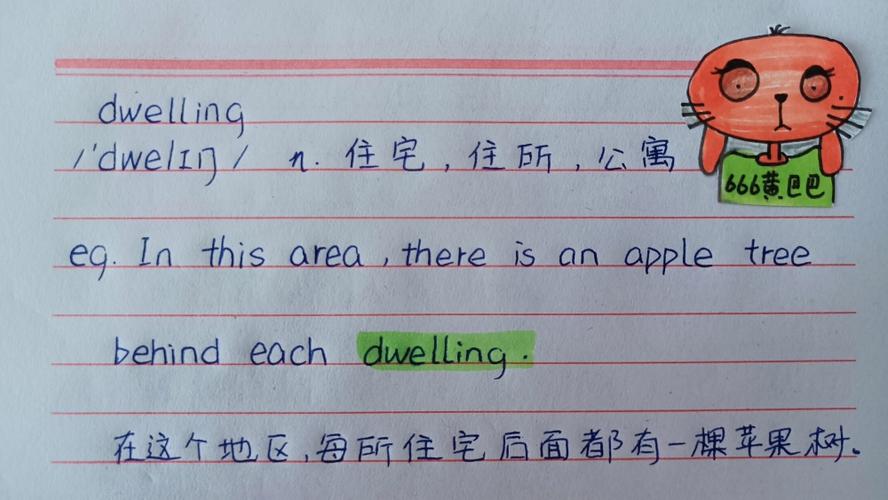 dwelling
/'dwelɪŋ/ n. 住宅，住所，公寓
666黄巴巴
eg. In this area, there is an apple tree
behind each dwelling.
在这个地区，每所住宅后面都有一棵苹果树。